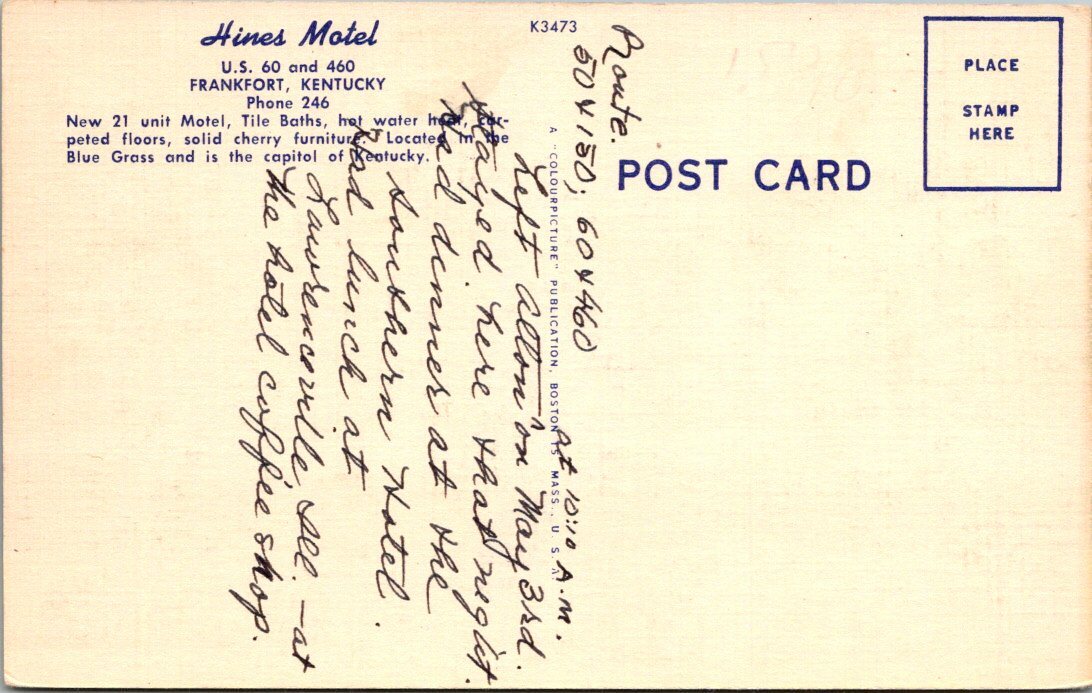 Hines Motel
U.S. 60 and 460
FRANKFORT, KENTUCKY
Phone 246
New 21 unit Motel, Tile Baths, hot water heat, car-
peted floors, solid cherry furniture. Located in the
Blue Grass and is the capitol of Kentucky.
K3473
PLACE
STAMP
HERE
POST CARD
A "COLOURPICTURE" PUBLICATION, BOSTON 15 MASS., U. S. A.
Route.
50 & 150; 60 & 460
at 10:10 A.M.
Left Alton on May 3rd.
Stayed here that night.
Had dinner at the
Southern Hotel.
Had lunch at
Lawrenceville Ill. — at
the hotel coffee shop.